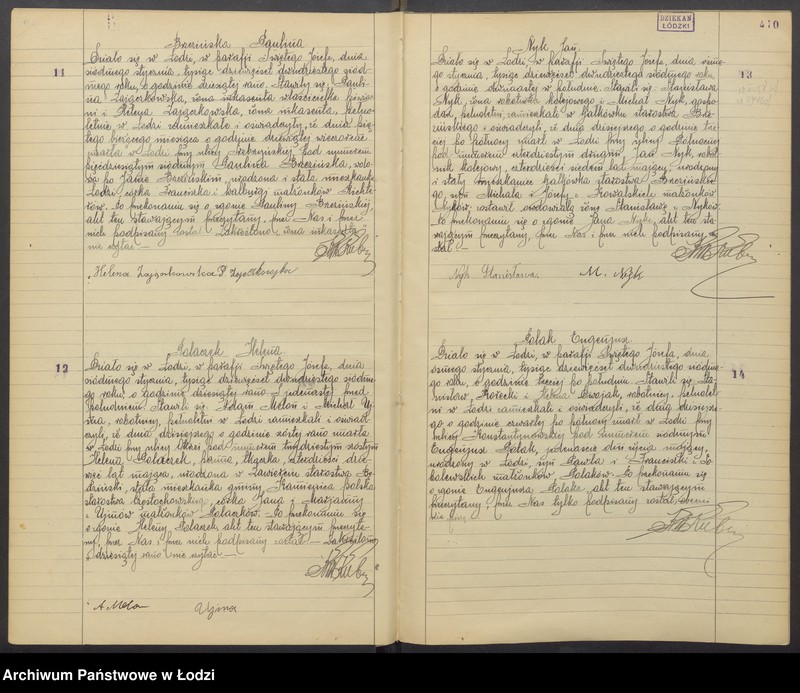 11
Brzezińska Paulina
Działo się w Łodzi, w parafji Świętego Józefa, dnia
siódmego stycznia, tysiąc dziewięćset dwudziestego siód-
mego roku, o godzinie dziesiątej rano. Stawiły się Pauli-
na Zajączkowska, żona inkasenta
i Helena Zajączkowska, żona inkasenta, pełno-
letnie, w Łodzi zamieszkałe i oświadczyły, że dnia
tego bieżącego miesiąca o godzinie dziewiątej wieczorem
zmarła w Łodzi przy ulicy pod numerem
pięćdziesiątym siódmym Paulina Brzezińska, wdo-
wa po Janie Brzezińskim, urodzona i stała mieszkanka
Łodzi, córka Franciszka i małżonków
Po przekonaniu się o zgonie Pauliny Brzezińskiej
akt ten stawającym przeczytany, przez Nas i przez
nich podpisany został. Zakreślono: żona inkasenta
nie czytać.—
Helena Zajączkowska P. Zajączkowska
12
Polaczek Helena
Działo się w Łodzi, w parafji Świętego Józefa, dnia
siódmego stycznia, tysiąc dziewięćset dwudziestego siódme-
go roku, o godzinie dziesiątej rano jedenastej przed
południem. Stawili się Adam Metoń i Michał Uj-
ma, robotnicy, pełnoletni w Łodzi zamieszkali i oświad-
czyli, że dnia dzisiejszego o godzinie szóstej rano umarła
w Łodzi przy ulicy pod numerem trzydziestym szóstym
Helena Polaczek, panna, tkaczka, czterdzieści dzie-
więć lat mająca, urodzona w Zawierciu starostwa Bę-
dziński, stała mieszkanka gminy Kamienica Polska
starostwa Częstochowskiego, córka Jana i Marjanny
z Ujmów małżonków Polaczków. Po przekonaniu się
o zgonie Heleny Polaczek akt ten stawającym przeczyta-
ny, przez Nas i przez nich podpisany został.— Zakreślono
dziesiątej rano nie czytać.—
A. Meto Ujma
DZIEKAN
ŁÓDZKI
410
13
Nyk Jan
Działo się w Łodzi, w parafji Świętego Józefa, dnia
go stycznia, tysiąc dziewięćset dwudziestego siódmego roku,
o godzinie dwunastej w południe. Stawili się Stanisława
Nyk, żona robotnika kolejowego i Michał Nyk, gospo-
darz, pełnoletni, zamieszkali w Gałkówku starostwa Brze-
zińskiego i oświadczyli, że dnia dzisiejszego o godzinie trze-
ciej po północy zmarł w Łodzi przy ulicy Północnej
pod numerem czterdziestym drugim Jan Nyk, robot-
nik kolejowy, czterdzieści siedem lat mający, urodzony
i stały mieszkaniec Gałkówka starostwa Brzeziński-
go, syn Michała i Józefy z Kowalskich małżonków
Nyków, zostawił owdowiałą żonę Stanisławę z Nyków.
Po przekonaniu się o zgonie Jana Nyka, akt ten sta-
wającym przeczytany, przez Nas i przez nich podpisany zo-
stał.—
Nyk Stanisława. M. Nyk
14
Polak Eugenjusz
Działo się w Łodzi, w parafji Świętego Józefa, dnia
ósmego stycznia, tysiąc dziewięćset dwudziestego siódme-
go roku, o godzinie trzeciej po południu. Stawili się Sta-
nisław Kotecki i Helena Owsiak, robotnicy, pełnolet-
ni w Łodzi zamieszkali i oświadczyli, że dnia dzisiejsze-
go o godzinie czwartej po północy zmarł w Łodzi przy
ulicy Konstantynowskiej pod numerem siódmym
Eugenjusz Polak, jedenaście dni życia mający,
urodzony w Łodzi, syn Pawła i Franciszki z So-
bolewskich małżonków Polaków. Po przekonaniu się
o zgonie Eugenjusza Polaka akt ten stawającym
przeczytany, przez Nas tylko podpisany został,
Archiwum Państwowe w Łodzi